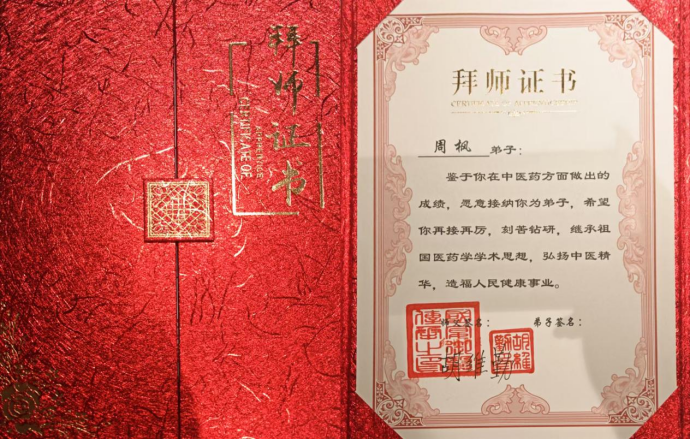 拜师证书
CERTIFICATE OF
拜师证书
周枫 弟子：
鉴于你在中医药方面做出的
成绩，愿意接纳你为弟子，希望
你再接再厉，刻苦钻研，继承祖
国医药学学术思想，弘扬中医精
华，造福人民健康事业。
师父签名： 弟子签名：
胡维勤
胡维勤